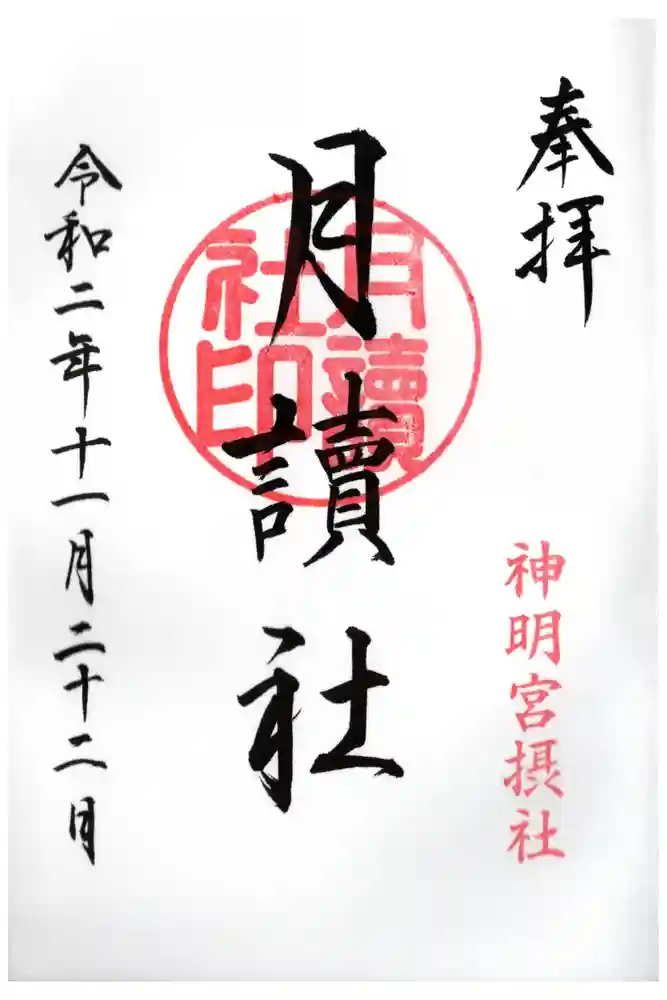 奉拝
神明宮摂社
月讀社
月讀
社印
令和二年十一月二十二日